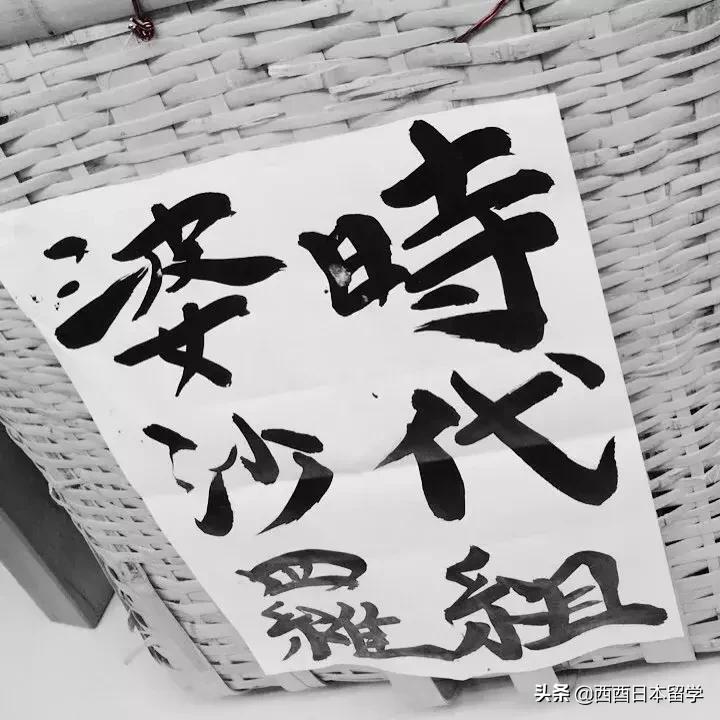 時代組
婆沙羅
头条 @西西日本留学